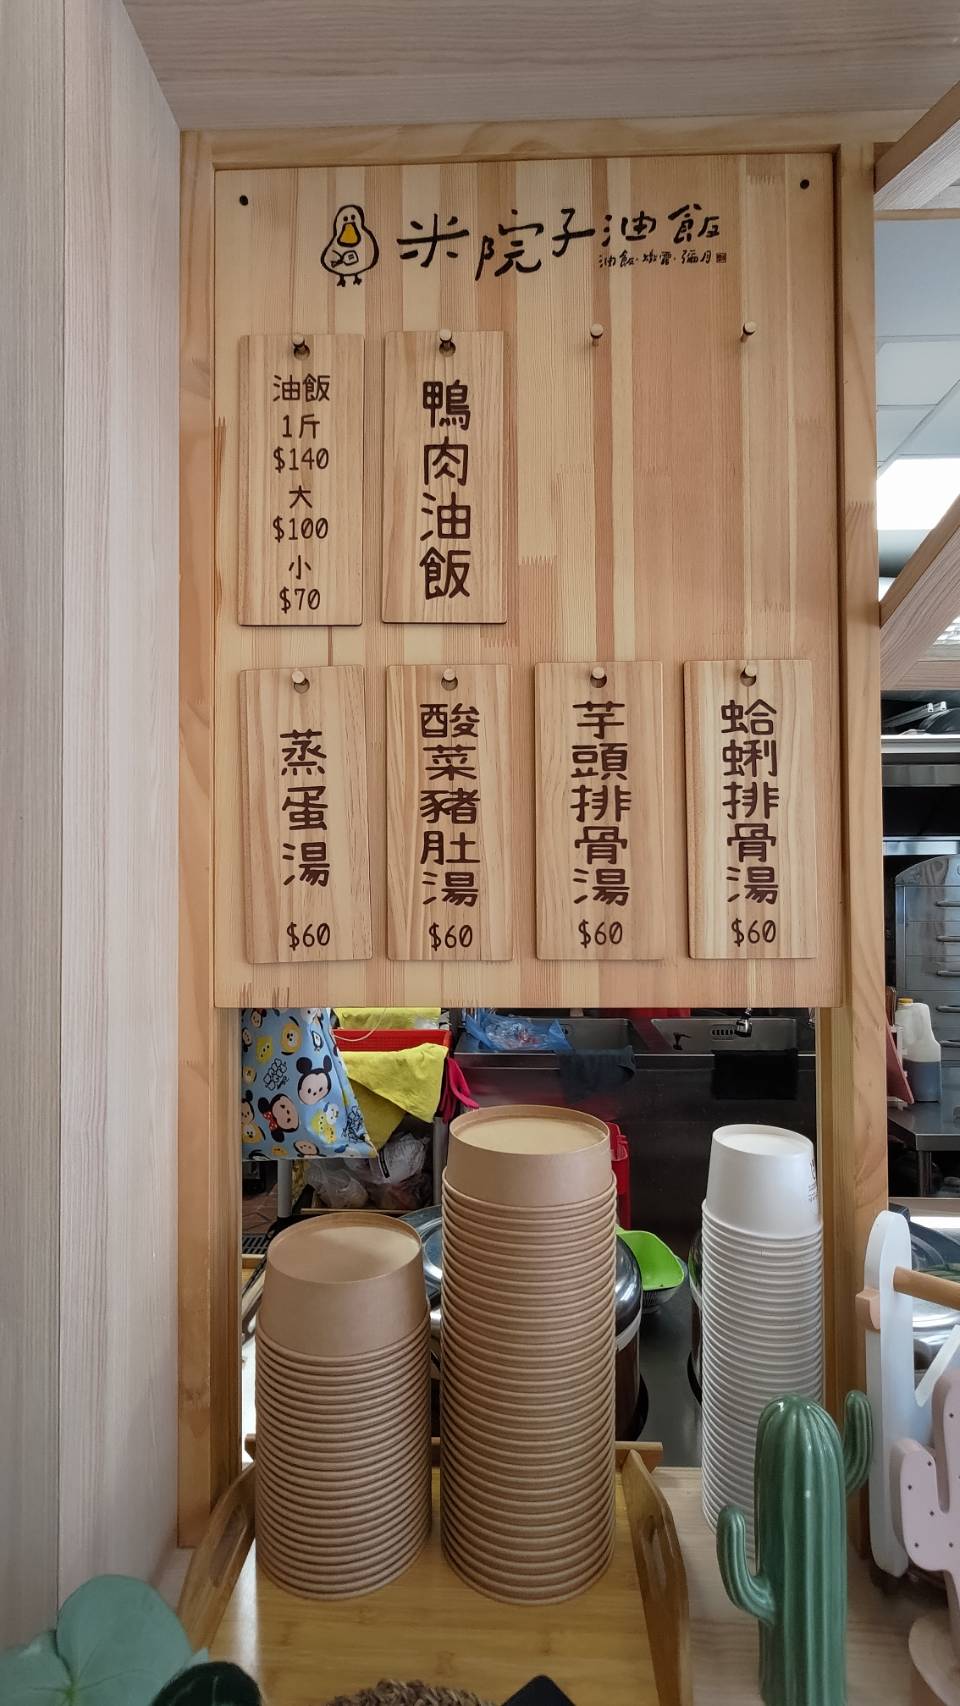 米院子油飯
油飯·燉露·彌月
油飯
1斤
$140
大
$100
小
$70
鴨肉油飯
蒸蛋湯
$60
酸菜豬肚湯
$60
芋頭排骨湯
$60
蛤蜊排骨湯
$60